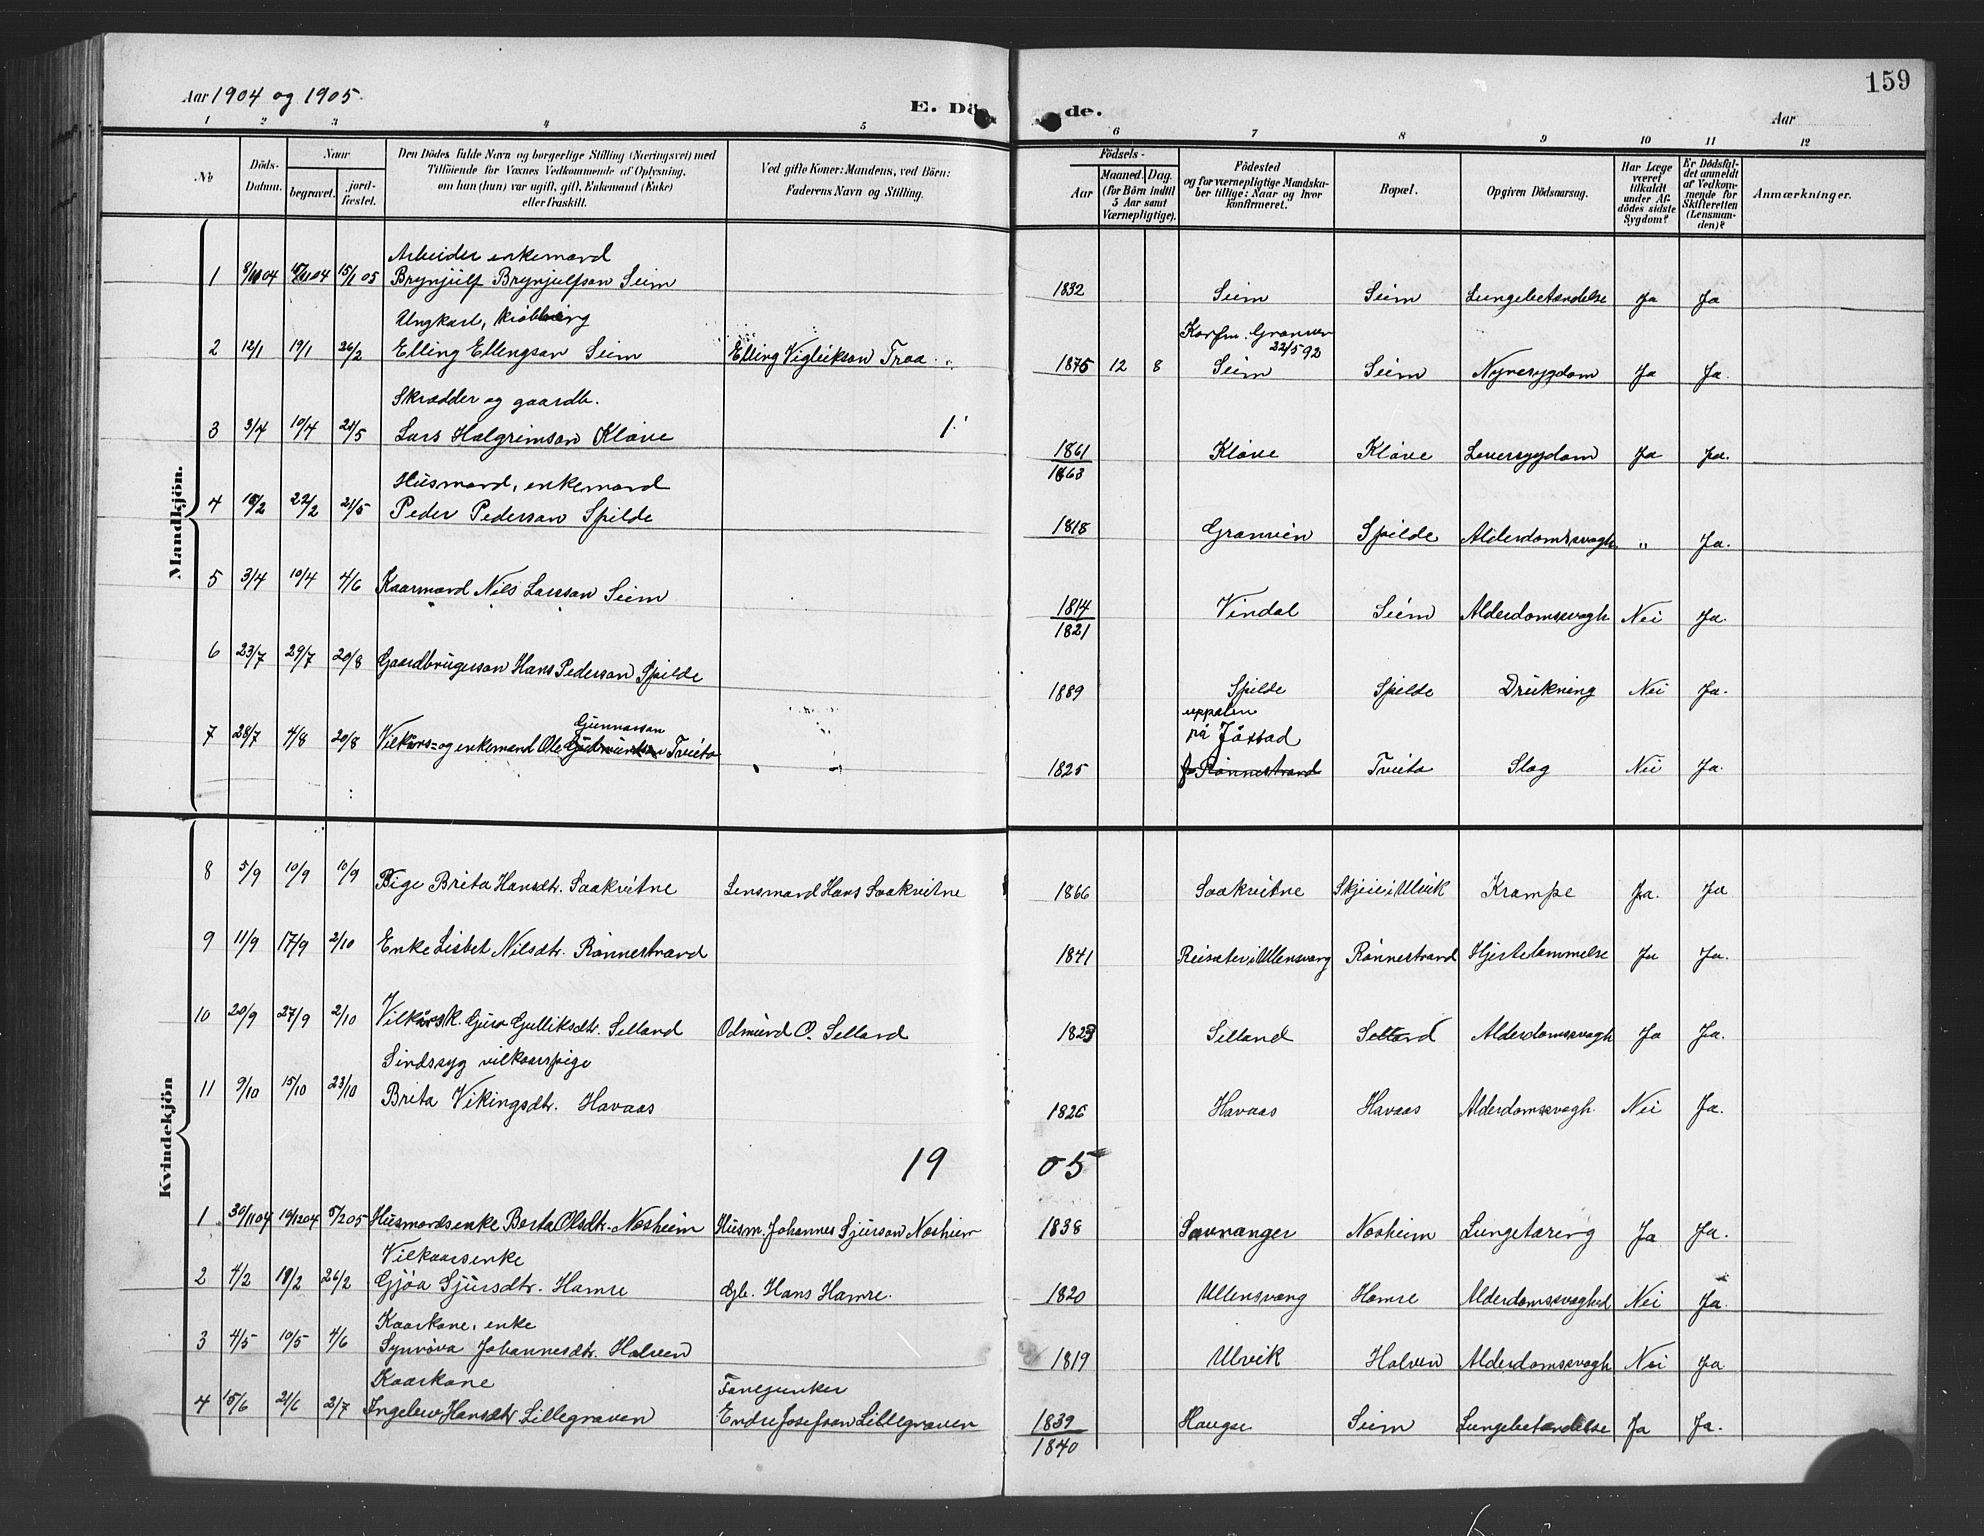 159
Aar 1904 og 1905.
E. Dö de.
Aar
1 2 3 4 5 6 7 8 9 10 11 12
No
Döds-Datum.
Naar
begravet.
jord-fæstet.
Den Dödes fulde Navn og borgerlige Stilling (Næringsvei) med
Tilföiende for Voxnes Vedkommende af Oplysning,
om han (hun) var ugift, gift, Enkemand (Enke)
eller fraskilt.
Ved gifte Koner: Mandens, ved Börn:
Faderens Navn og Stilling.
Födsels-
Aar
Maaned. Dag.
(for Börn indtil
5 Aar samt
Værnepligtige).
Födested
og for værnepligtige Mandska-
ber tillige: Naar og hvor
konfirmeret.
Bopæl.
Opgiven Dödsaarsag.
Har Læge
været
tilkaldt
under Af-
dödes sidste
Sygdom?
Er Dödsfal-
det anmeldt
af Vedkom-
mende for
Skifteretten
(Lensman-
den)?
Anmærkninger.
Mandkjön.
Arbeider enkemand
1 04 04 15/1 05 Brynjulf Brynjulfson Seim 1832 Seim Seim Lungebetændelse Ja Ja
Ungkarl,
Konfm. Granvin
22/5 92
2 12/1 19/1 26/2 Elling Ellingson Seim Elling Vigleikson Traa 1875 12 8 Seim Seim Nyresygdom Ja Ja.
Skrædder og gaardb.
3 3/4 10/4 21/5 Lars Halgrimson Kløve 1861 Kløve Kløve Leversygdom Ja Ja.
1863
Husmand, enkemand
4 22/2 21/5 Peder Pederson Spilde 1818 Granvin Spilde Alderdomssvagh. " Ja.
5 3/4 10/4 4/6 Kaarmand Nils Larsson Seim 1814 Vindal Seim Alderdomssvagh. Nei Ja.
1821
6 23/7 29/7 20/8 Gaardbrugerson Hans Pederson Spilde 1889 Spilde Spilde Drukning Nei Ja.
Gunnarson
på Jåstad
7 28/7 4/8 20/8 Vilkårs- og enkemand Ole Tveito 1825 Rønnestrand Tveito Slag Nei Ja.
Kvindekjön
8 5/9 10/9 10/9 Pige Brita Hansdtr. Saakvitne Lensmand Hans Saakvitne 1866 Saakvitne Skjeie i Ulvik Krampe Ja. Ja
9 11/9 17/9 2/10 Enke Lisbet Nilsdtr. Rønnestrand 1841 Reisæter i Ullensvang Rønnestrand Hjertelammelse Ja Ja.
10 20/9 27/9 2/10 Vilkårsk. Guro Gulliksdtr. Selland Odmund O. Selland 1823 Selland Selland Alderdomssvagh Ja Ja.
Sindssyg vilkaarspige
11 9/10 15/10 23/10 Brita Vikingsdtr. Havaas 1826 Havaas Havaas Alderdomssvagh. Nei Ja.
19 05
1 30/11 04 10/12 04 5/2 05 Husmandsenke Berta Olsdtr. Nesheim Husm. Johannes Sjurson Nesheim 1838 Nesheim Lungetæring Ja Ja.
Vilkaarsenke
2 4/2 18/2 26/2 Gjøa Sjursdtr. Hamre Gb. Hans Hamre. 1820 Ullensvang Hamre Alderdomssvaghed Nei Ja.
Kaarkone, enke
3 4/5 10/5 4/6 Synnøva Johannesdtr. Halven 1819 Ulvik Halven Alderdomssvagh Nei Ja
Kaarkone Fanejunker
4 15/6 21/6 2/7 Ingelev Hansdtr Lillegraven Endre Josefson Lillegraven 1839 Hauge Seim Lungebetændelse Ja Ja.
1840